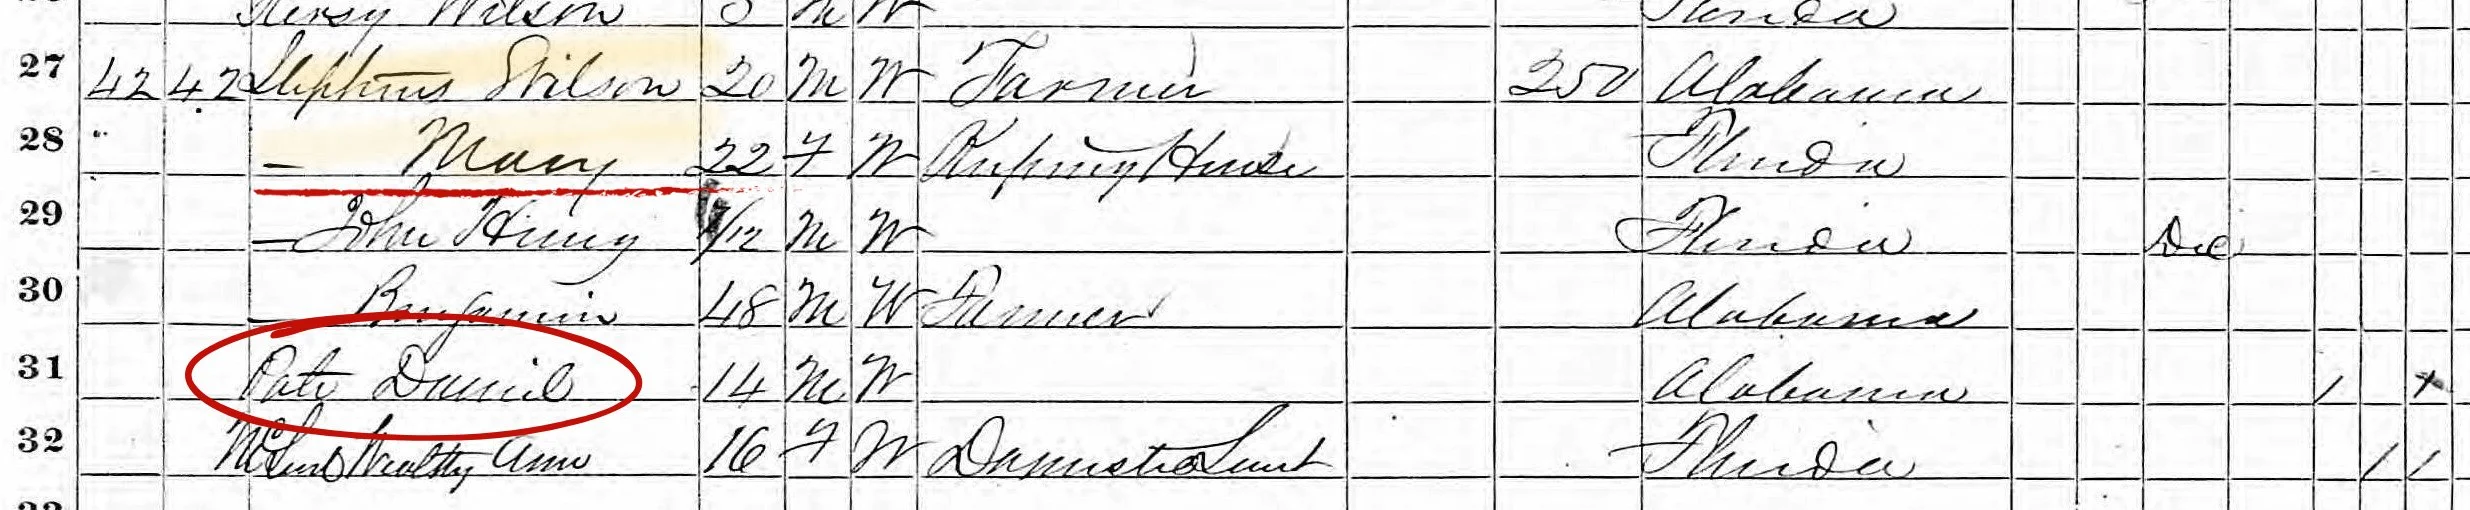 Wilson M W Florida
27 42 42 Stephens Wilson 20 M W Farmer 250 Alabama
28 " — Mary 22 F W Keeping House Florida
29 — John Henry /12 M W Florida Dec
30 — Benjamin 48 M W Farmer Alabama
31 Pate Daniel 14 M W Alabama 1
32 Wealthy Ann 16 F W Domestic Servt Florida 1 1
33